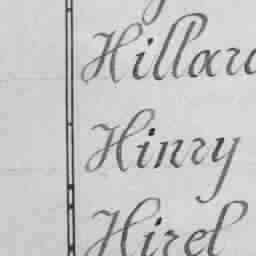 Hillard
Hinry
Hirel